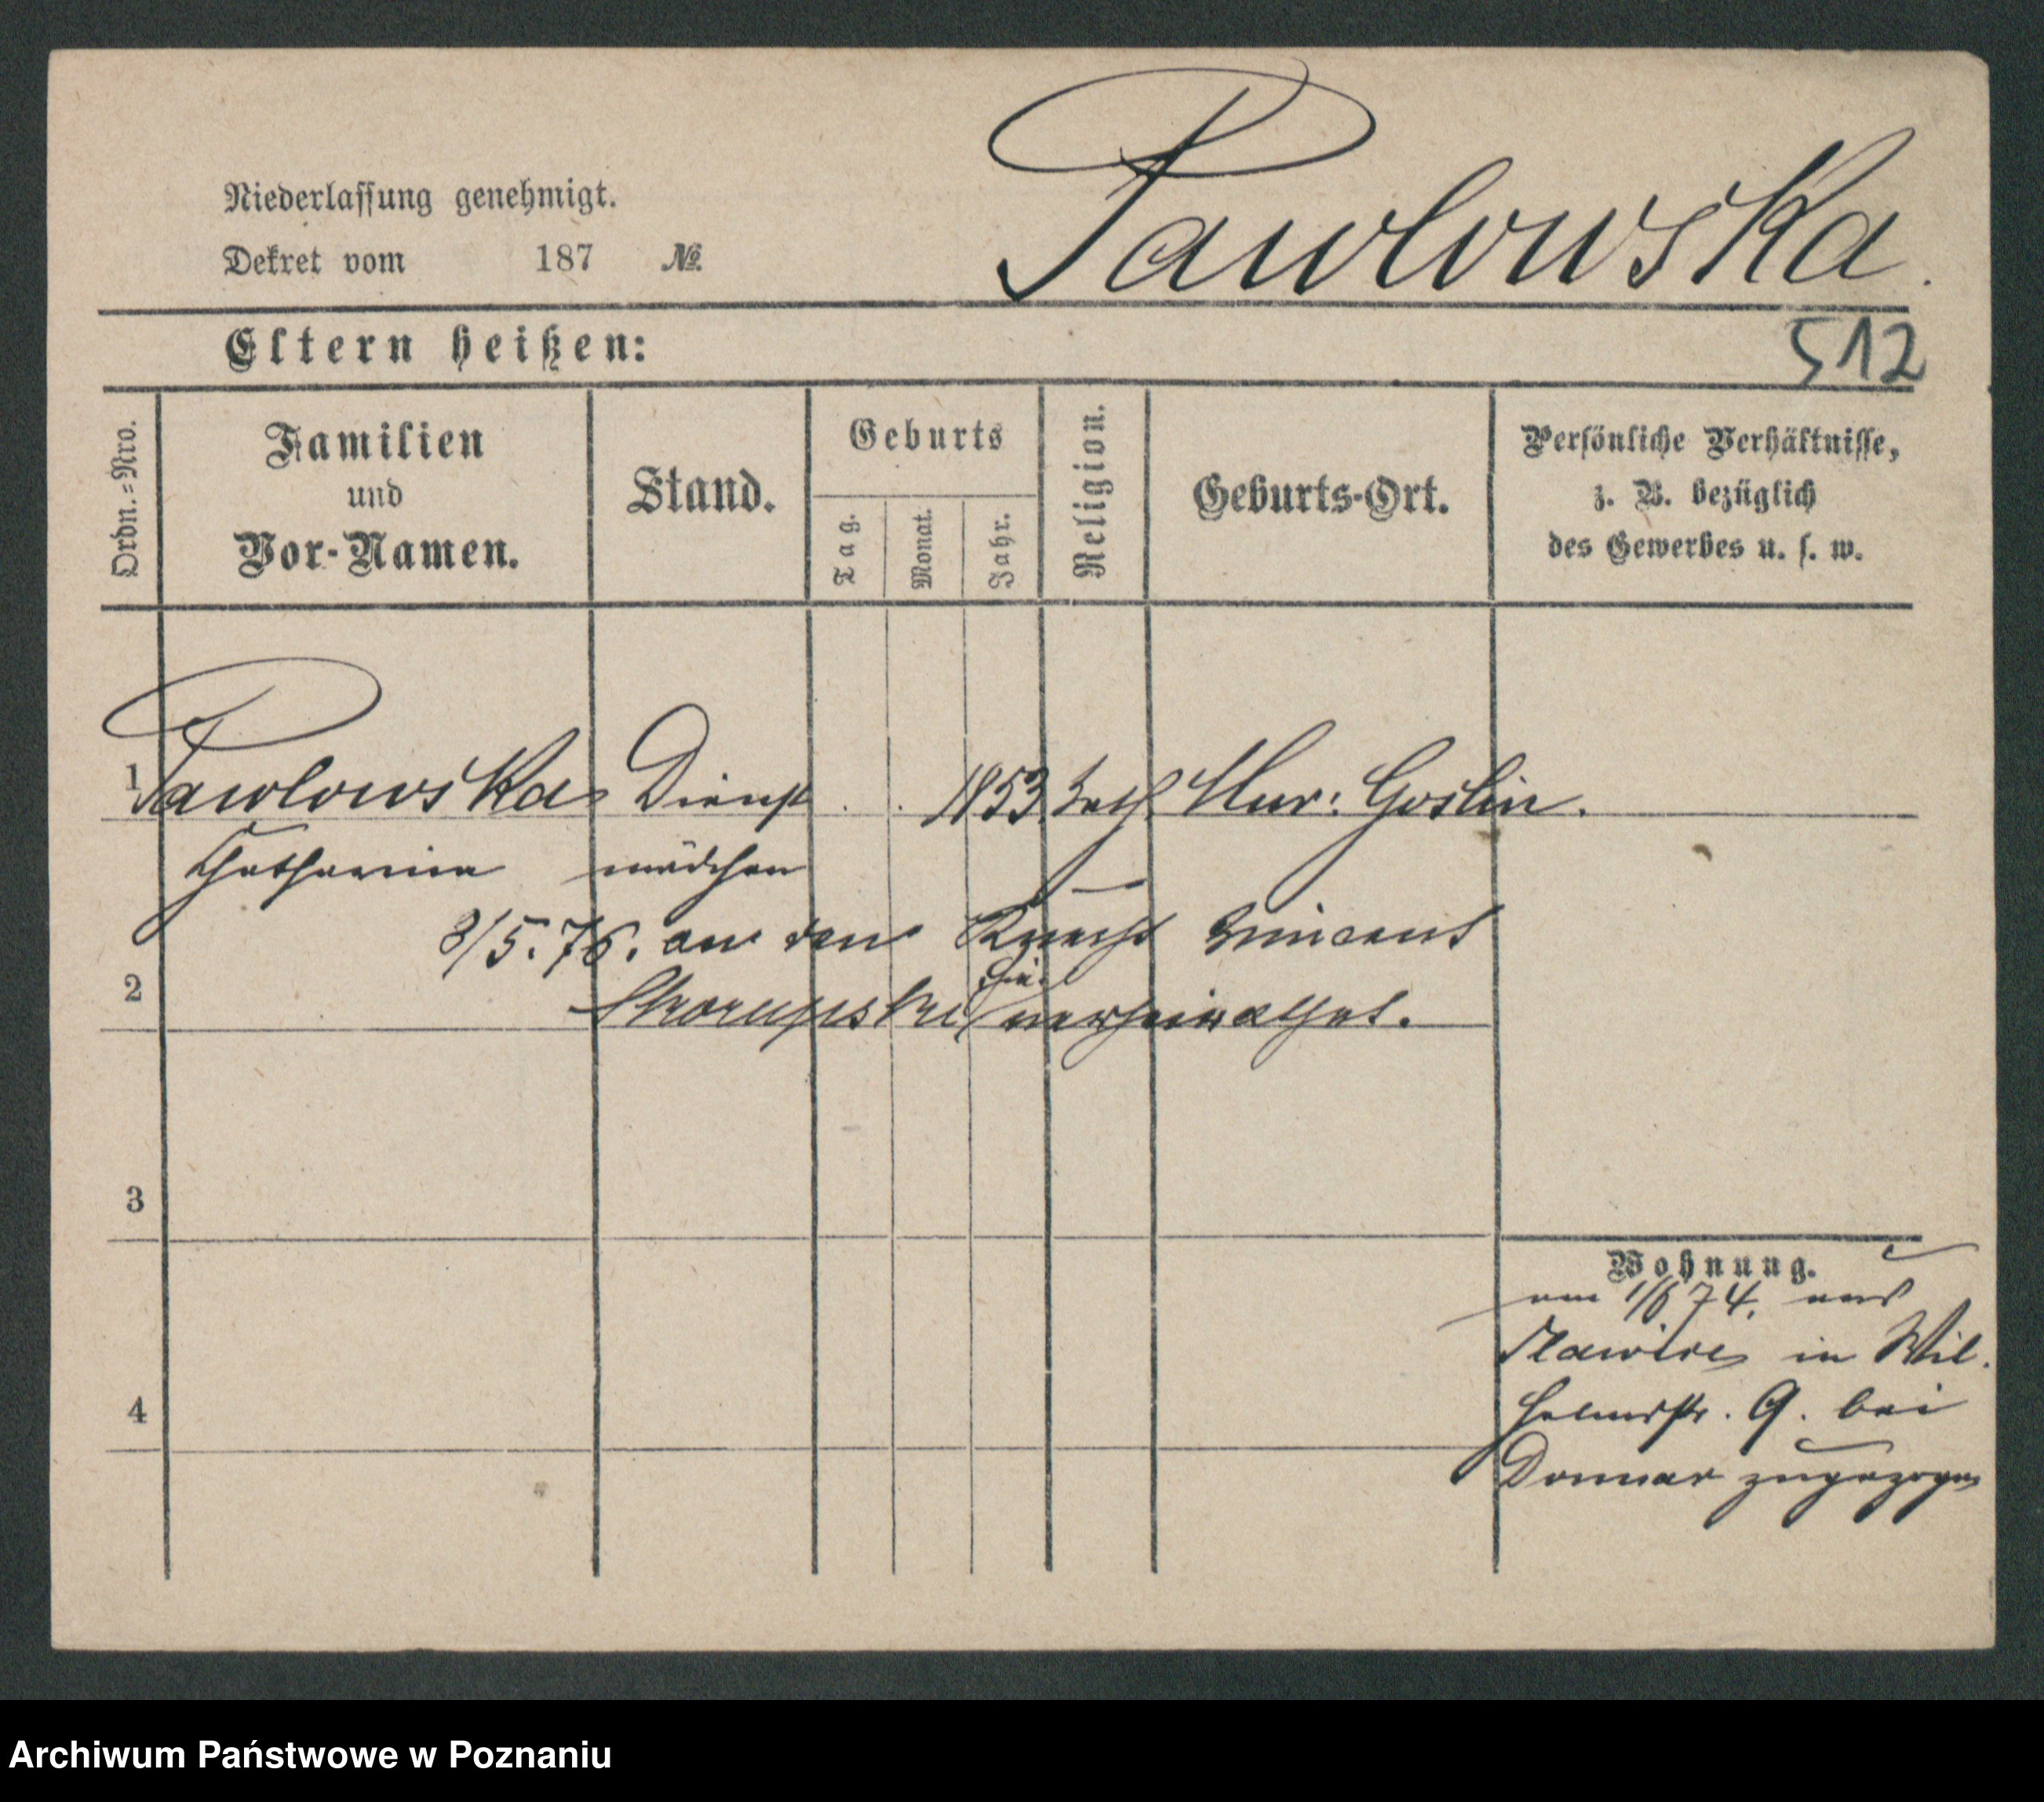 Pawlowska.
Niederlassung genehmigt.
Dekret vom 187 №
Eltern heißen:
512
Ordn.=Nro.
Familien
und
Vor-Namen.
Stand.
Geburts
Tag.
Monat.
Jahr.
Religion.
Geburts-Ort.
Persönliche Verhältnisse,
z. B. bezüglich
des Gewerbes u. s. w.
1 Pawlowska Dienst 1853 kath. Mur: Goslin.
Catharina mädchen
8/5.76. an den Knecht Vincent
2
Skorupski hie. verheirathet.
3
4
Wohnung.
am 1/6 74. aus
in Wil.
helmstr. 9. bei
zugezogen
Archiwum Państwowe w Poznaniu